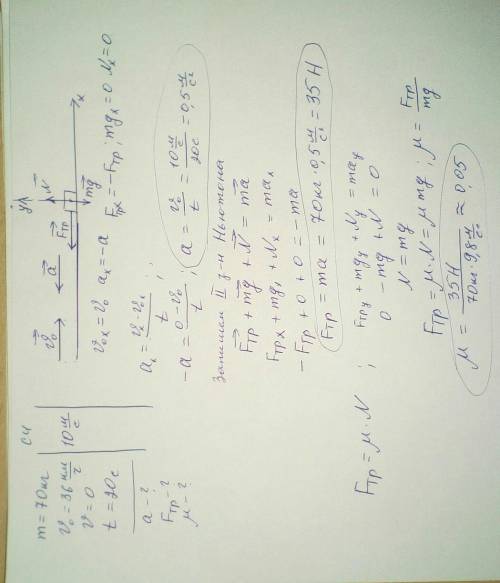 m = 70 кг
СИ
v₀ = 36 км/г
10 м/с
v = 0
t = 20 с
a - ?
Fтр - ?
μ - ?
v⃗₀ a⃗ F⃗тр y N⃗ mg⃗ x
v₀ₓ = v₀ aₓ = -a Fтрₓ = -Fтр; mgₓ = 0 Nₓ = 0
aₓ = (vₓ - v₀ₓ)/t;
-a = (0 - v₀)/t; a = v₀/t = (10 м/с)/(20 с) = 0,5 м/с²
Запишем II з-н Ньютона
F⃗тр + mg⃗ + N⃗ = ma⃗
Fтрₓ + mgₓ + Nₓ = maₓ
-Fтр + 0 + 0 = -ma
Fтр = ma = 70 кг · 0,5 м/с² = 35 Н
Fтр = μ · N; Fтр y + mg y + N y = ma y
0 - mg + N = 0
N = mg
Fтр = μ · N = μ mg; μ = Fтр/mg
μ = 35 Н/(70 кг · 9,8 м/с²) ≈ 0,05